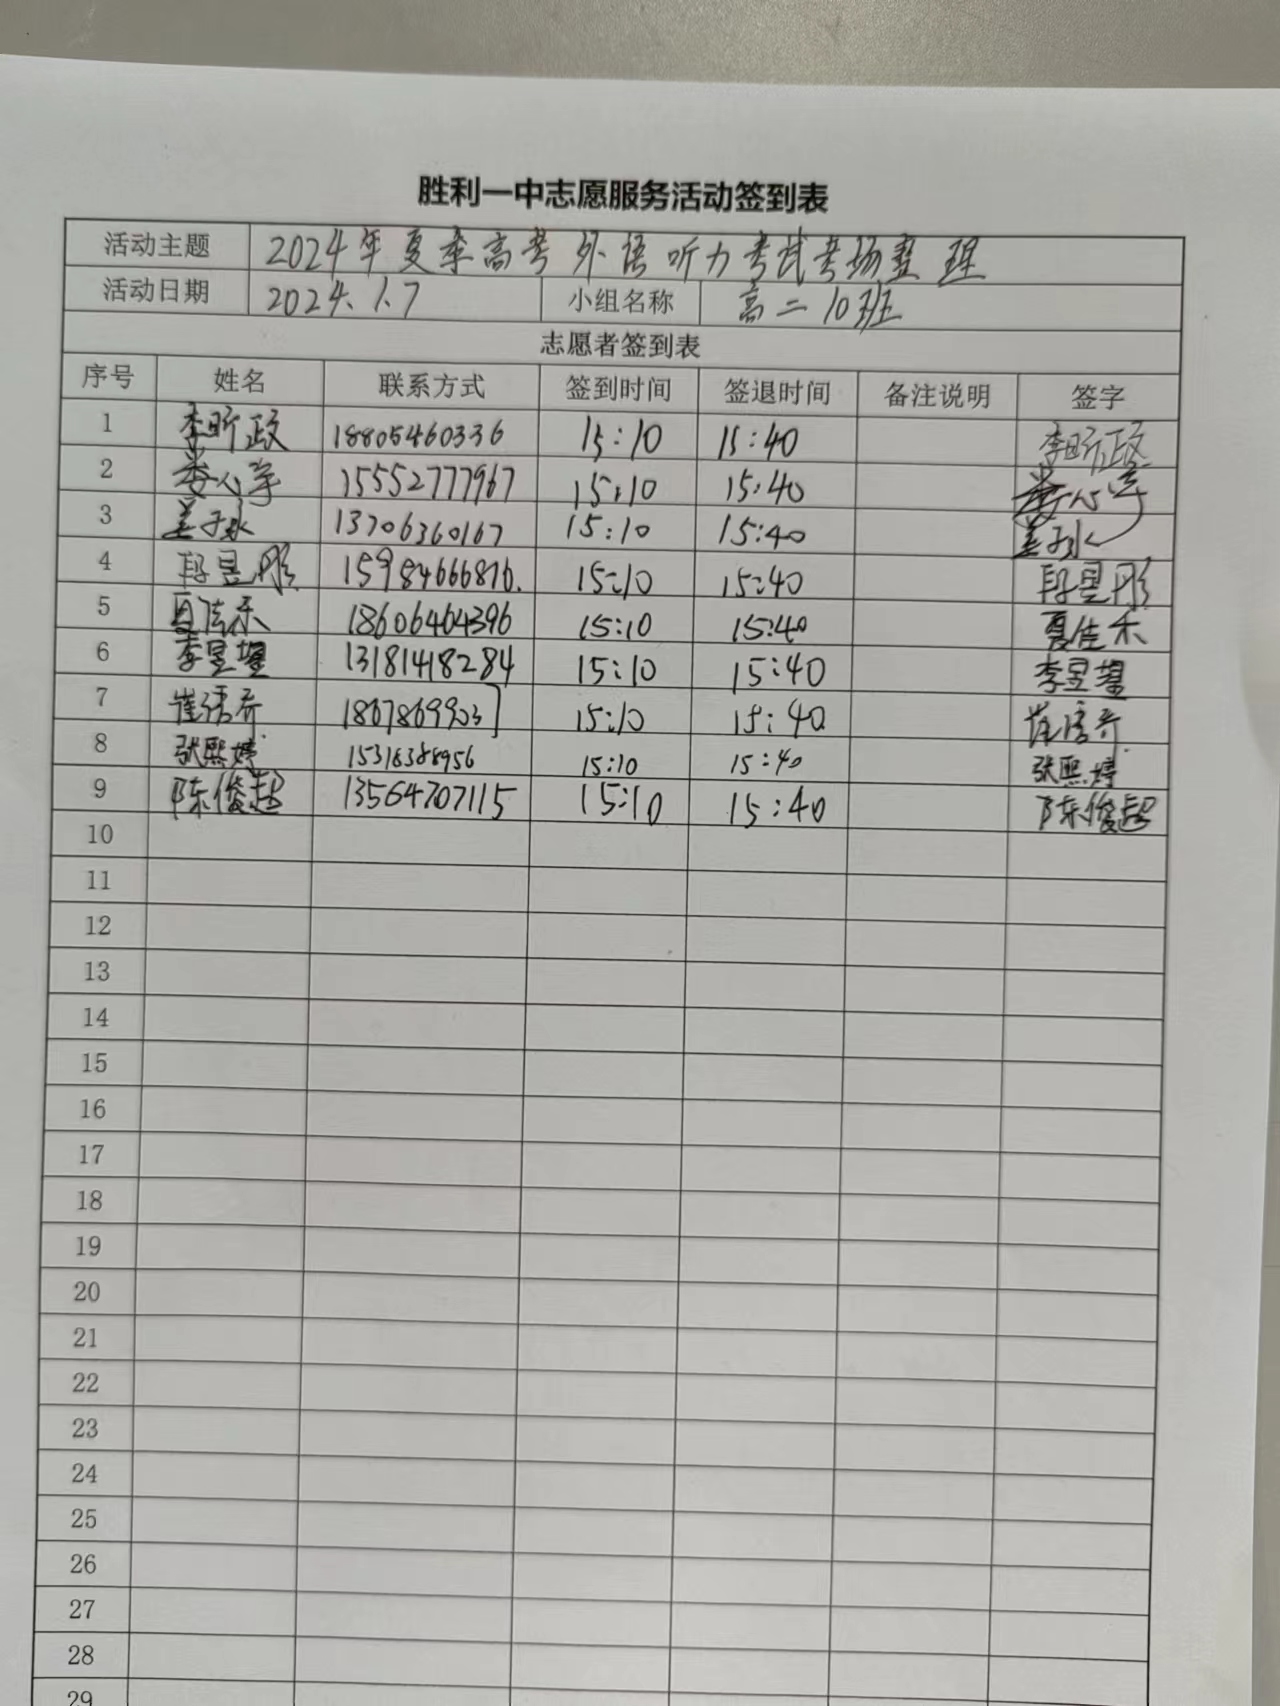 胜利一中志愿服务活动签到表
活动主题 2024年夏季高考外语听力考试考场整理
活动日期 2024.1.7 小组名称 高二10班
志愿者签到表
序号 姓名 联系方式 签到时间 签退时间 备注说明 签字
1 李昕政 18805460336 15:10 15:40 李昕政
2 娄心宇 15552777967 15:10 15:40 娄心宇
3 姜子泳 13706360167 15:10 15:40
4 段昱彤 15984666876. 15:10 15:40 段昱彤
5 夏佳禾 18606464396 15:10 15:40 夏佳禾
6 李昱墁 13181418284 15:10 15:40
7 15:10 15:40
8 张熙婷 15318388956 15:10 15:40 张熙婷
9 陈俊超 13564707115 15:10 15:40 陈俊超
10
11
12
13
14
15
16
17
18
19
20
21
22
23
24
25
26
27
28
29